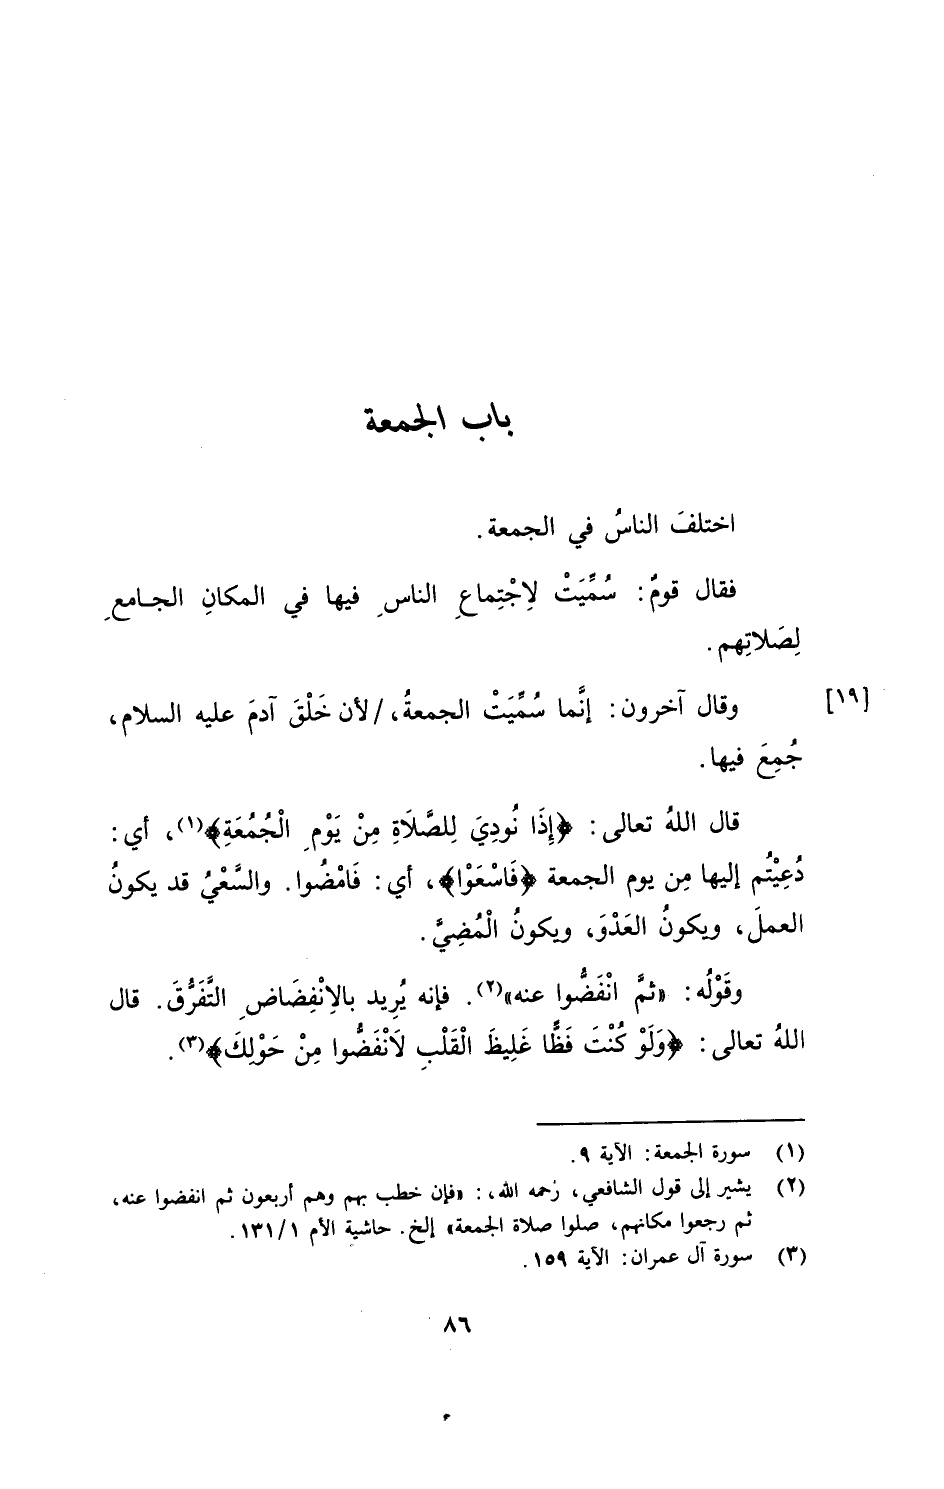 باب الجمعة
اختلفَ الناسُ في الجمعة.
فقال قومٌ: سُمِّيَتْ لِاجْتِماعِ الناسِ فيها في المكانِ الجامعِ
لِصَلاتِهم.
[١٩] وقال آخرون: إنَّما سُمِّيَتْ الجمعةُ، /لأن خَلْقَ آدمَ عليه السلام،
جُمِعَ فيها.
قال اللهُ تعالى: ﴿إِذَا نُودِيَ لِلصَّلَاةِ مِنْ يَوْمِ الْجُمُعَةِ﴾(١)، أي:
دُعِيْتُم إليها مِن يوم الجمعة ﴿فَاسْعَوْا﴾، أي: فَامْضُوا. والسَّعْيُ قد يكونُ
العملَ، ويكونُ العَدْوَ، ويكونُ الْمُضِيَّ.
وقَوْلُه: «ثمَّ انْفَضُّوا عنه»(٢). فإنه يُرِيد بالِانْفِضَاضِ التَّفَرُّقَ. قال
اللهُ تعالى: ﴿وَلَوْ كُنْتَ فَظًّا غَلِيظَ الْقَلْبِ لَانْفَضُّوا مِنْ حَوْلِكَ﴾(٣).
(١) سورة الجمعة: الآية ٩.
(٢) يشير إلى قول الشافعي، رَحمه الله،: «فإن خطب بهم وهم أربعون ثم انفضوا عنه،
ثم رجعوا مكانهم، صلوا صلاة الجمعة» إلخ. حاشية الأم ١/١٣١.
(٣) سورة آل عمران: الآية ١٥٩.
٨٦